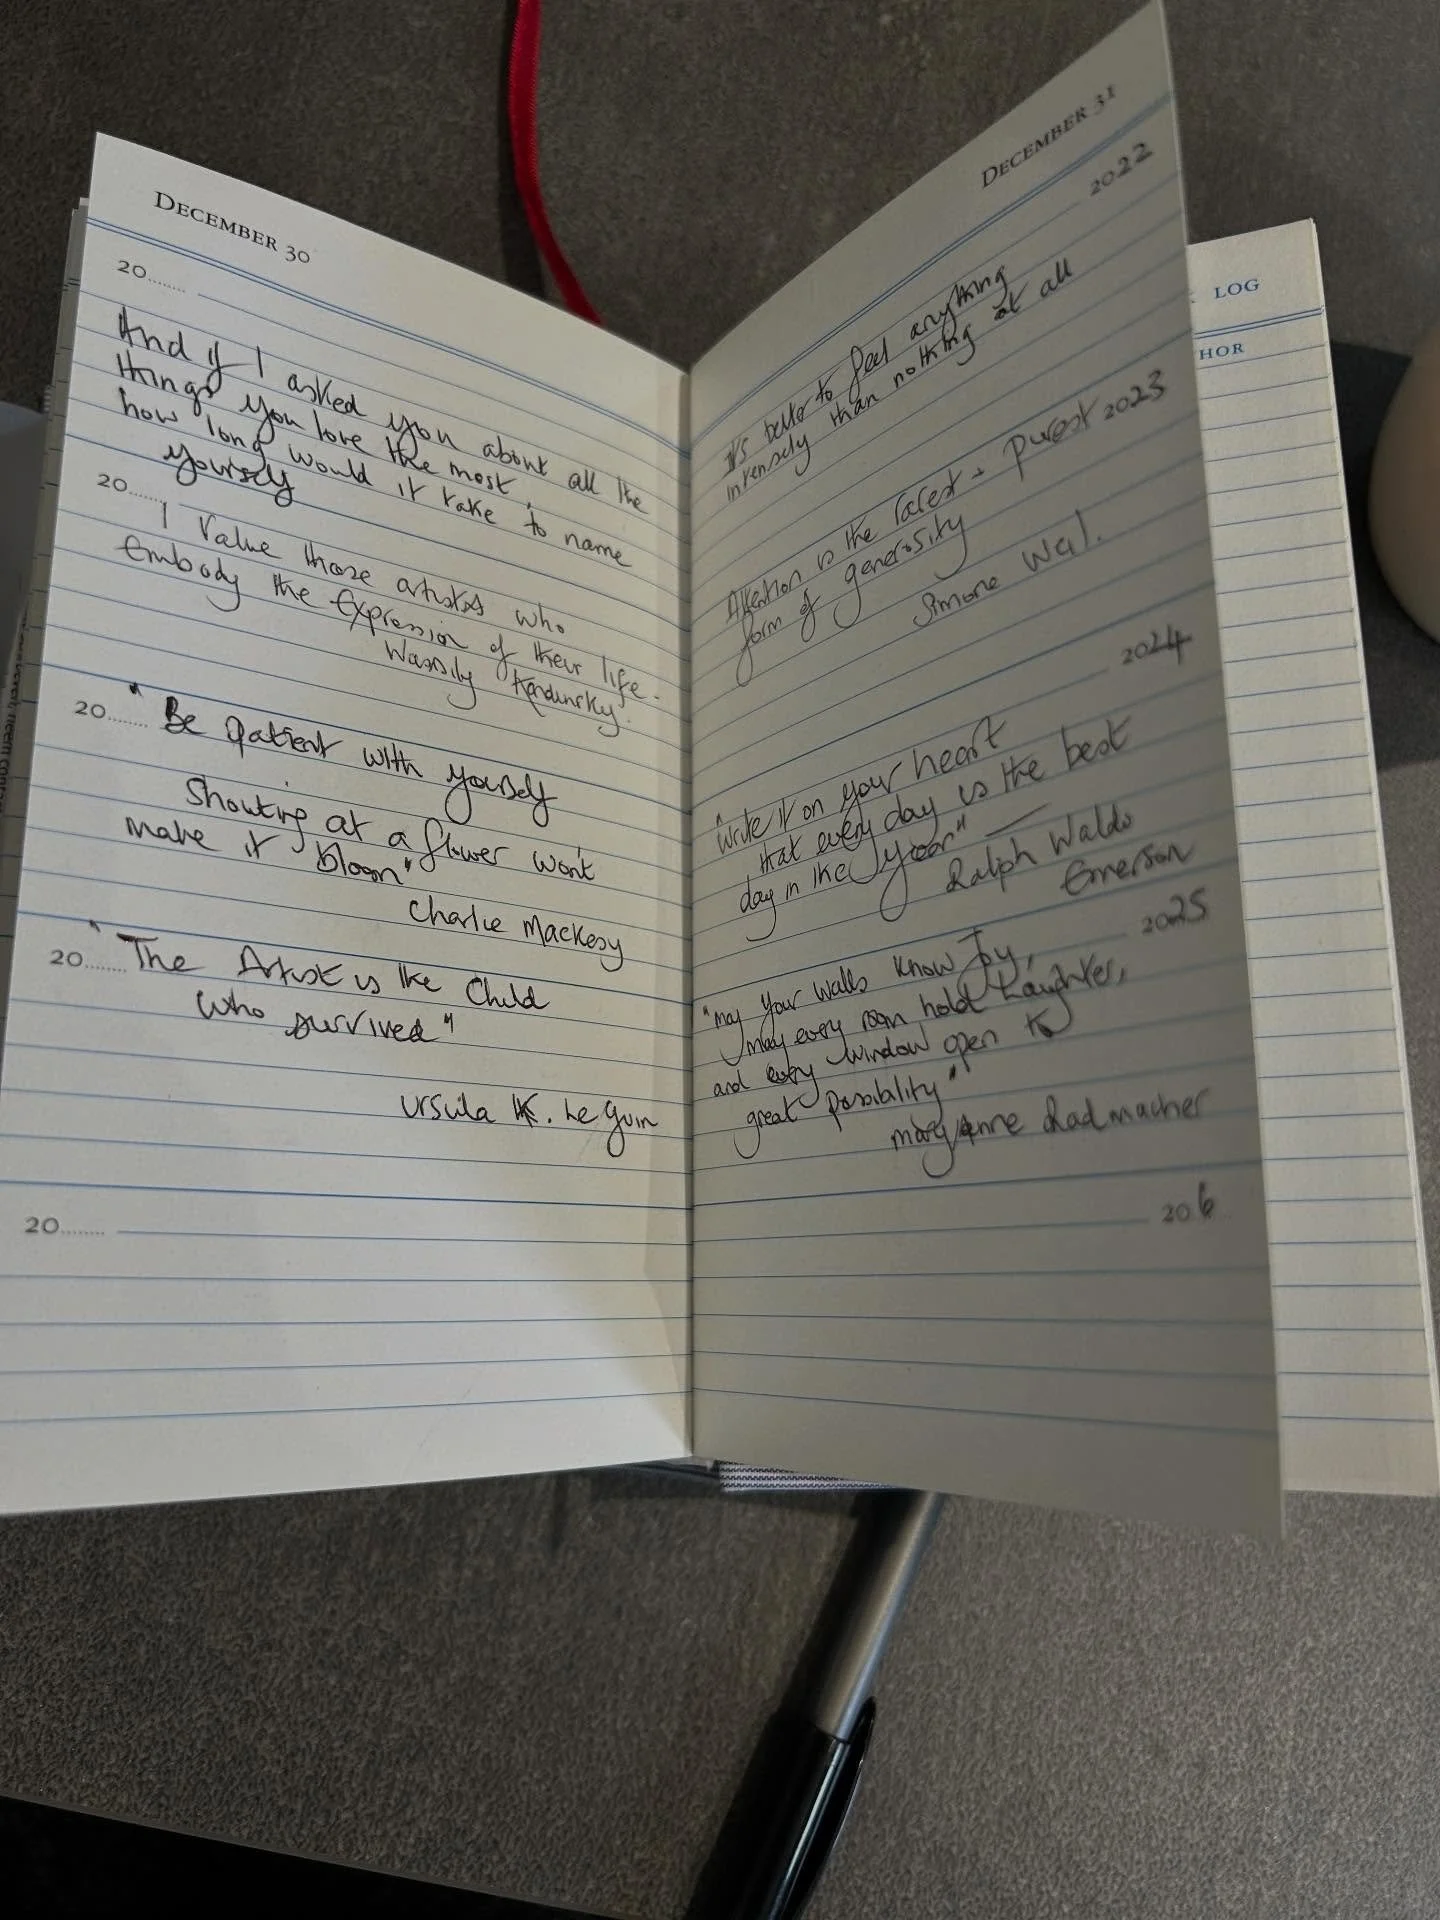 DECEMBER 30
20........
And if I asked you about all the
things you love the most,
how long would it take to name
yourself
20........
I value those artists who
embody the expression of their life.
Wassily Kandinsky.
20........ "Be patient with yourself
Shouting at a flower won't
make it bloom"
Charlie Mackesy
20........ "The Artist is the Child
who survived"
Ursula K. Le Guin
20........
DECEMBER 31
2022
It's better to feel anything
intensely than nothing at all
2023
Attention is the rarest + purest
form of generosity
Simone Weil.
2024
"Write it on your heart
that every day is the best
day in the year" —
Ralph Waldo
Emerson
2025
"may your walls know Joy,
may every room hold Laughter,
and every window open to
great possibility"
maryanne Radmacher
20 6
LOG
HOR